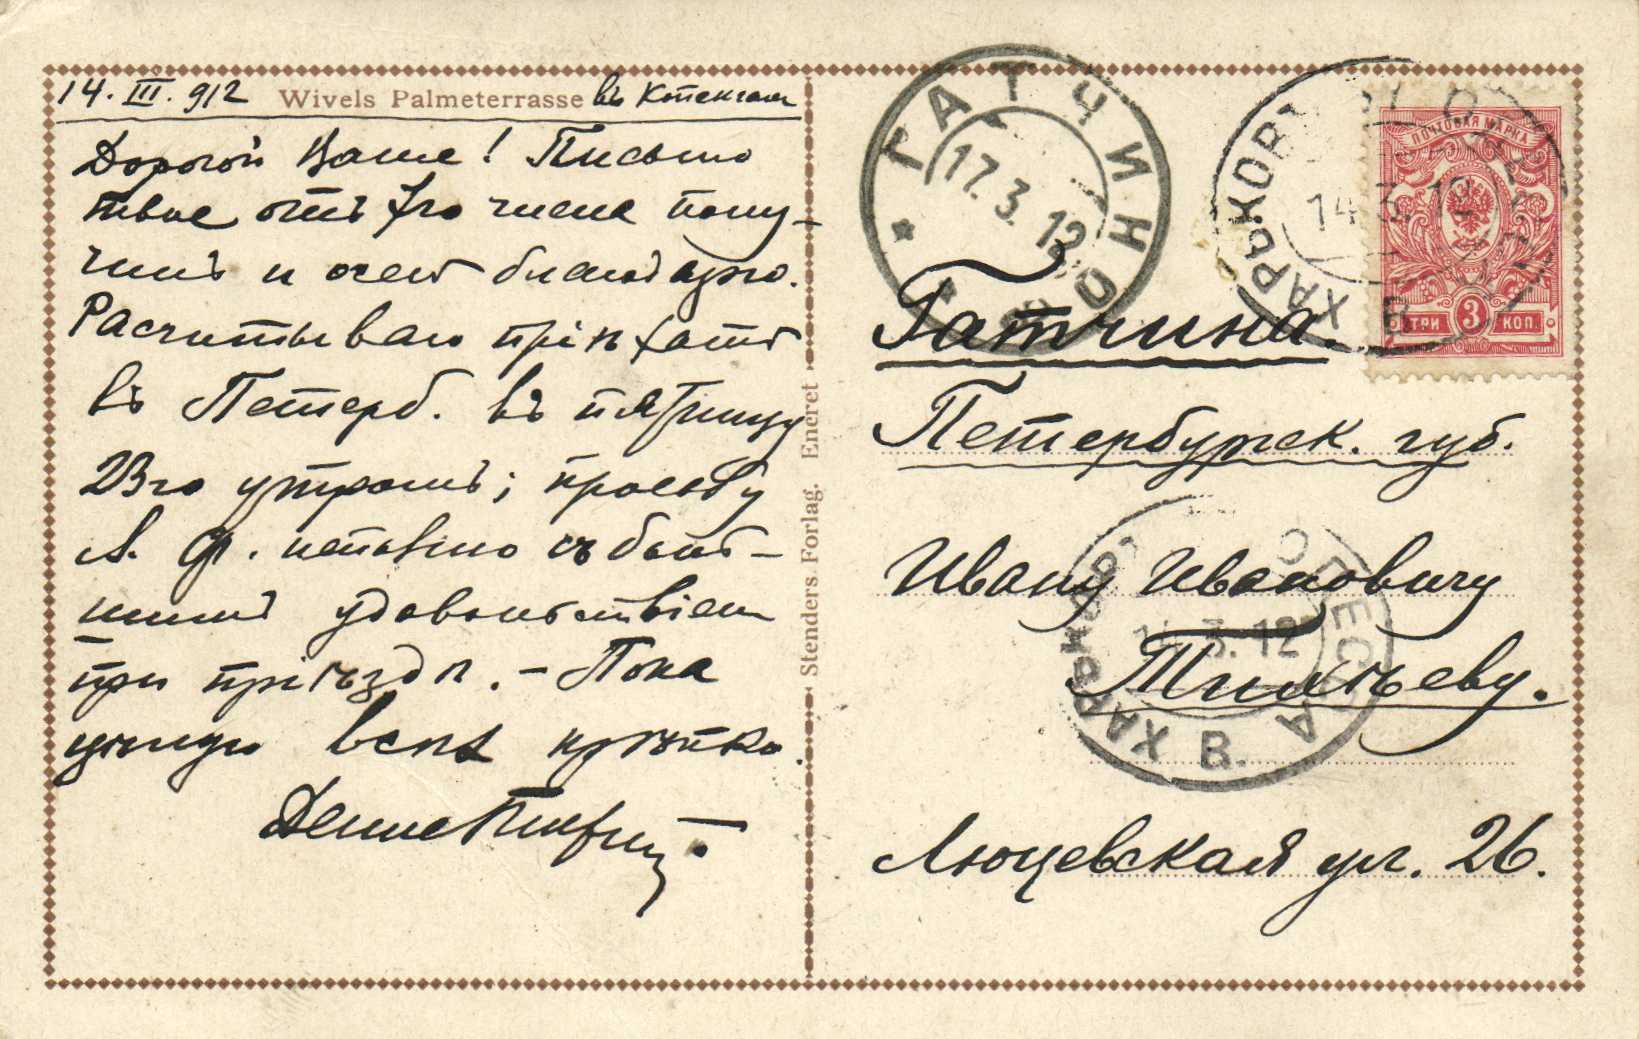 14. III. 912 Wivels Palmeterrasse въ Копенгагн
Дорогой Ваше! Письмо
твое отъ 7го числа полу-
чилъ и очень благодарю.
Расчитываю пріѣхать
въ Петерб. въ пятницу
23го утромъ; просьбу
А. Ф. исполню съ боль-
шимъ удовольствіем
при пріѣздѣ. – Пока
цѣлую всѣхъ крѣпко.
Stenders Forlag. Eneret
ГАТЧИНО
17.3.12
ХАРЬКОВЪ
14.3.12
В
ПОЧТОВАЯ МАРКА
ТРИ 3 КОП.
Гатчина.
Петербургск. губ.
Ивану Ивановичу
Тихѣеву.
Люцевская ул. 26.
ХАРЬКОВЪ
14.3.12
В.